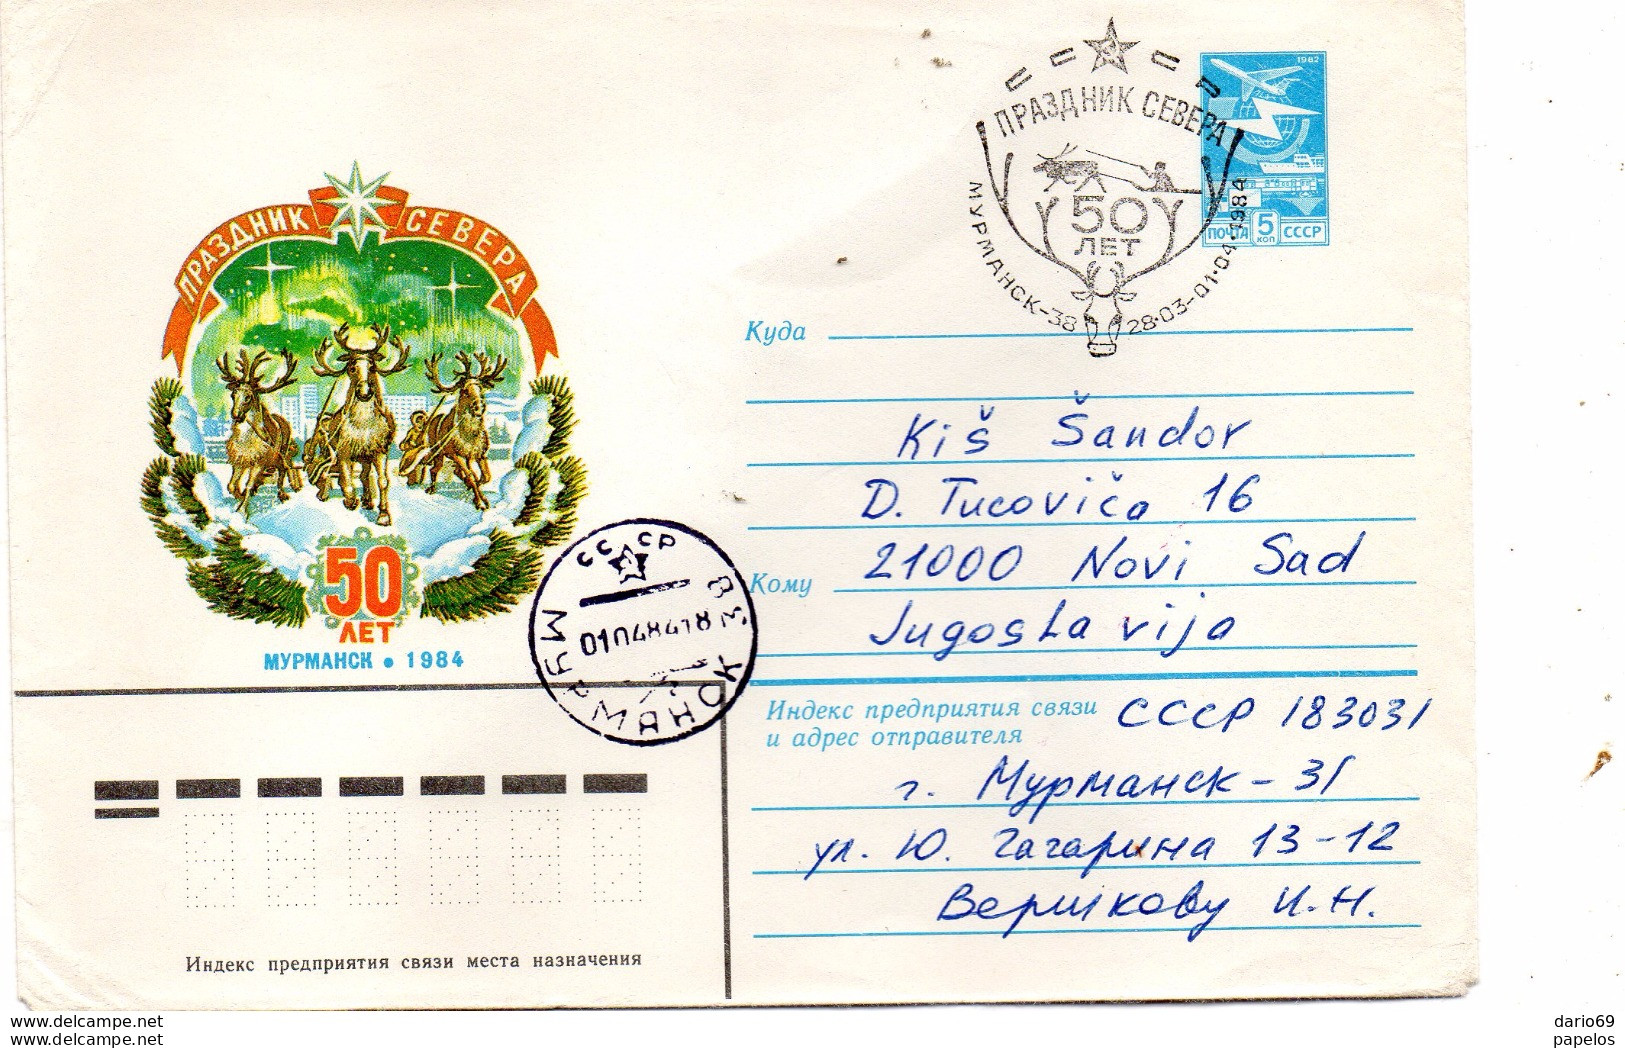 ПРАЗДНИК СЕВЕРА
50
ЛЕТ
МУРМАНСК-38 28·03-01·04·1984
1982
ПОЧТА 5 КОП СССР
ПРАЗДНИК СЕВЕРА
50
ЛЕТ
МУРМАНСК • 1984
СССР
МУРМАНСК 38
Куда
Kiš Šandor
D. Tucoviča 16
21000 Novi Sad
Кому
Jugoslavija
Индекс предприятия связи
и адрес отправителя
СССР 183031
г. Мурманск - 31
ул. Ю. Гагарина 13-12
Вершкову И.Н.
Индекс предприятия связи места назначения
www.delcampe.net
www.delcampe.net
dario69
papelos